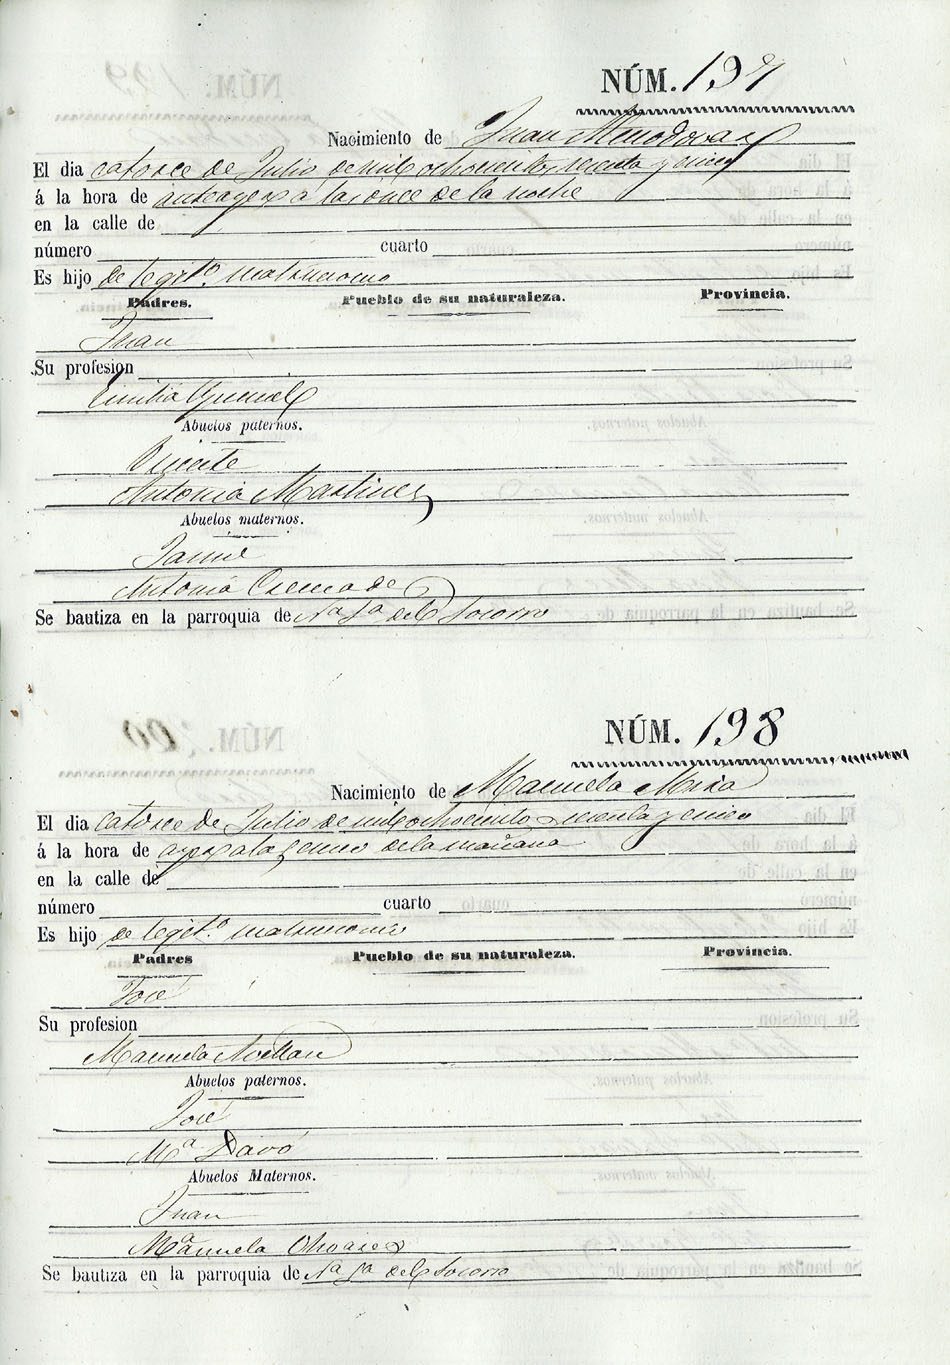 NÚM. 197
Nacimiento de Juan Almodovar
El dia catorce de Julio de mil ochociento sesenta y cinco
á la hora de anteayer á las once de la noche
en la calle de
número cuarto
Es hijo de legit.º matrimonio
Padres. Pueblo de su naturaleza. Provincia.
Juan
Su profesion
Emilia
Abuelos paternos.
Vicente
Antonia Martinez
Abuelos maternos.
Jaime
Antonia Cremades
Se bautiza en la parroquia de Nª Sª del Socorro
NÚM. 198
Nacimiento de Manuela Mira
El dia catorce de Julio de mil ochociento sesenta y cinco
á la hora de ayer a las cinco de la mañana
en la calle de
número cuarto
Es hijo de legit.º matrimonio
Padres Pueblo de su naturaleza. Provincia.
José
Su profesion
Manuela Avellan
Abuelos paternos.
José
Mª Davó
Abuelos Maternos.
Juan
Manuela Olivares
Se bautiza en la parroquia de Nª Sª del Socorro